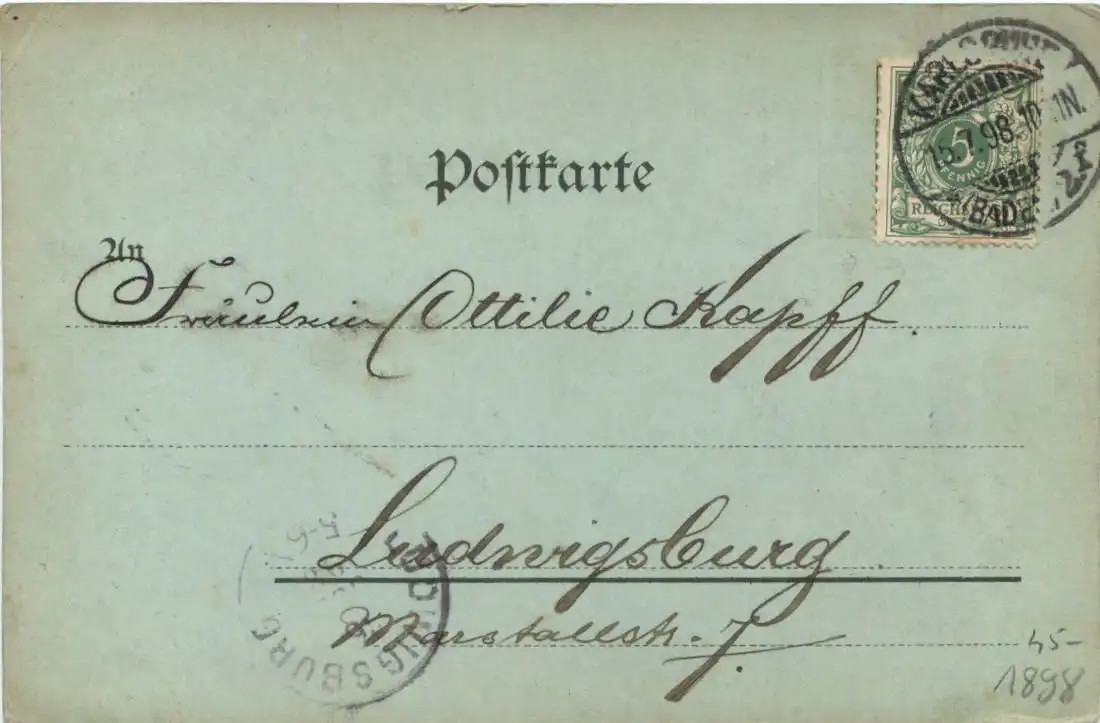 Postkarte
KARLSRUHE
15.7.98.10-11N.
(BADEN)
5
PFENNIG
REICHS
An
Fräulein Ottilie Kapff.
Ludwigsburg
Marstallstr. 7.
LUDWIGSBURG
5-6
45-
1898